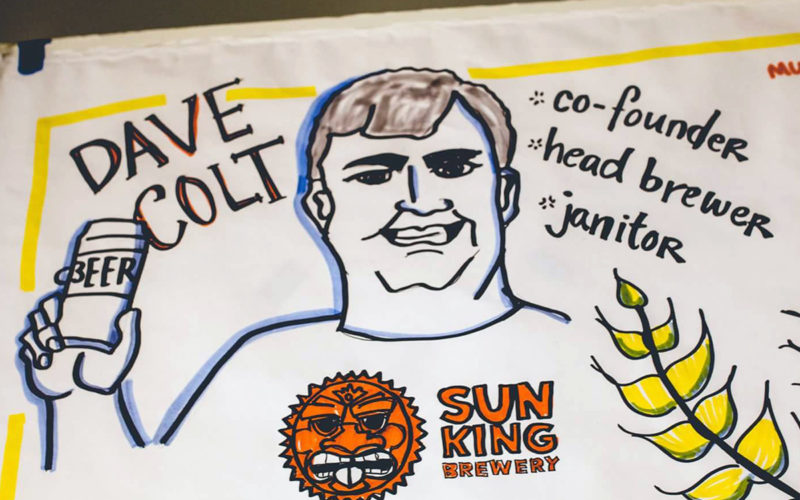 DAVE
COLT
BEER
* co-founder
* head brewer
* janitor
SUN
KING
BREWERY